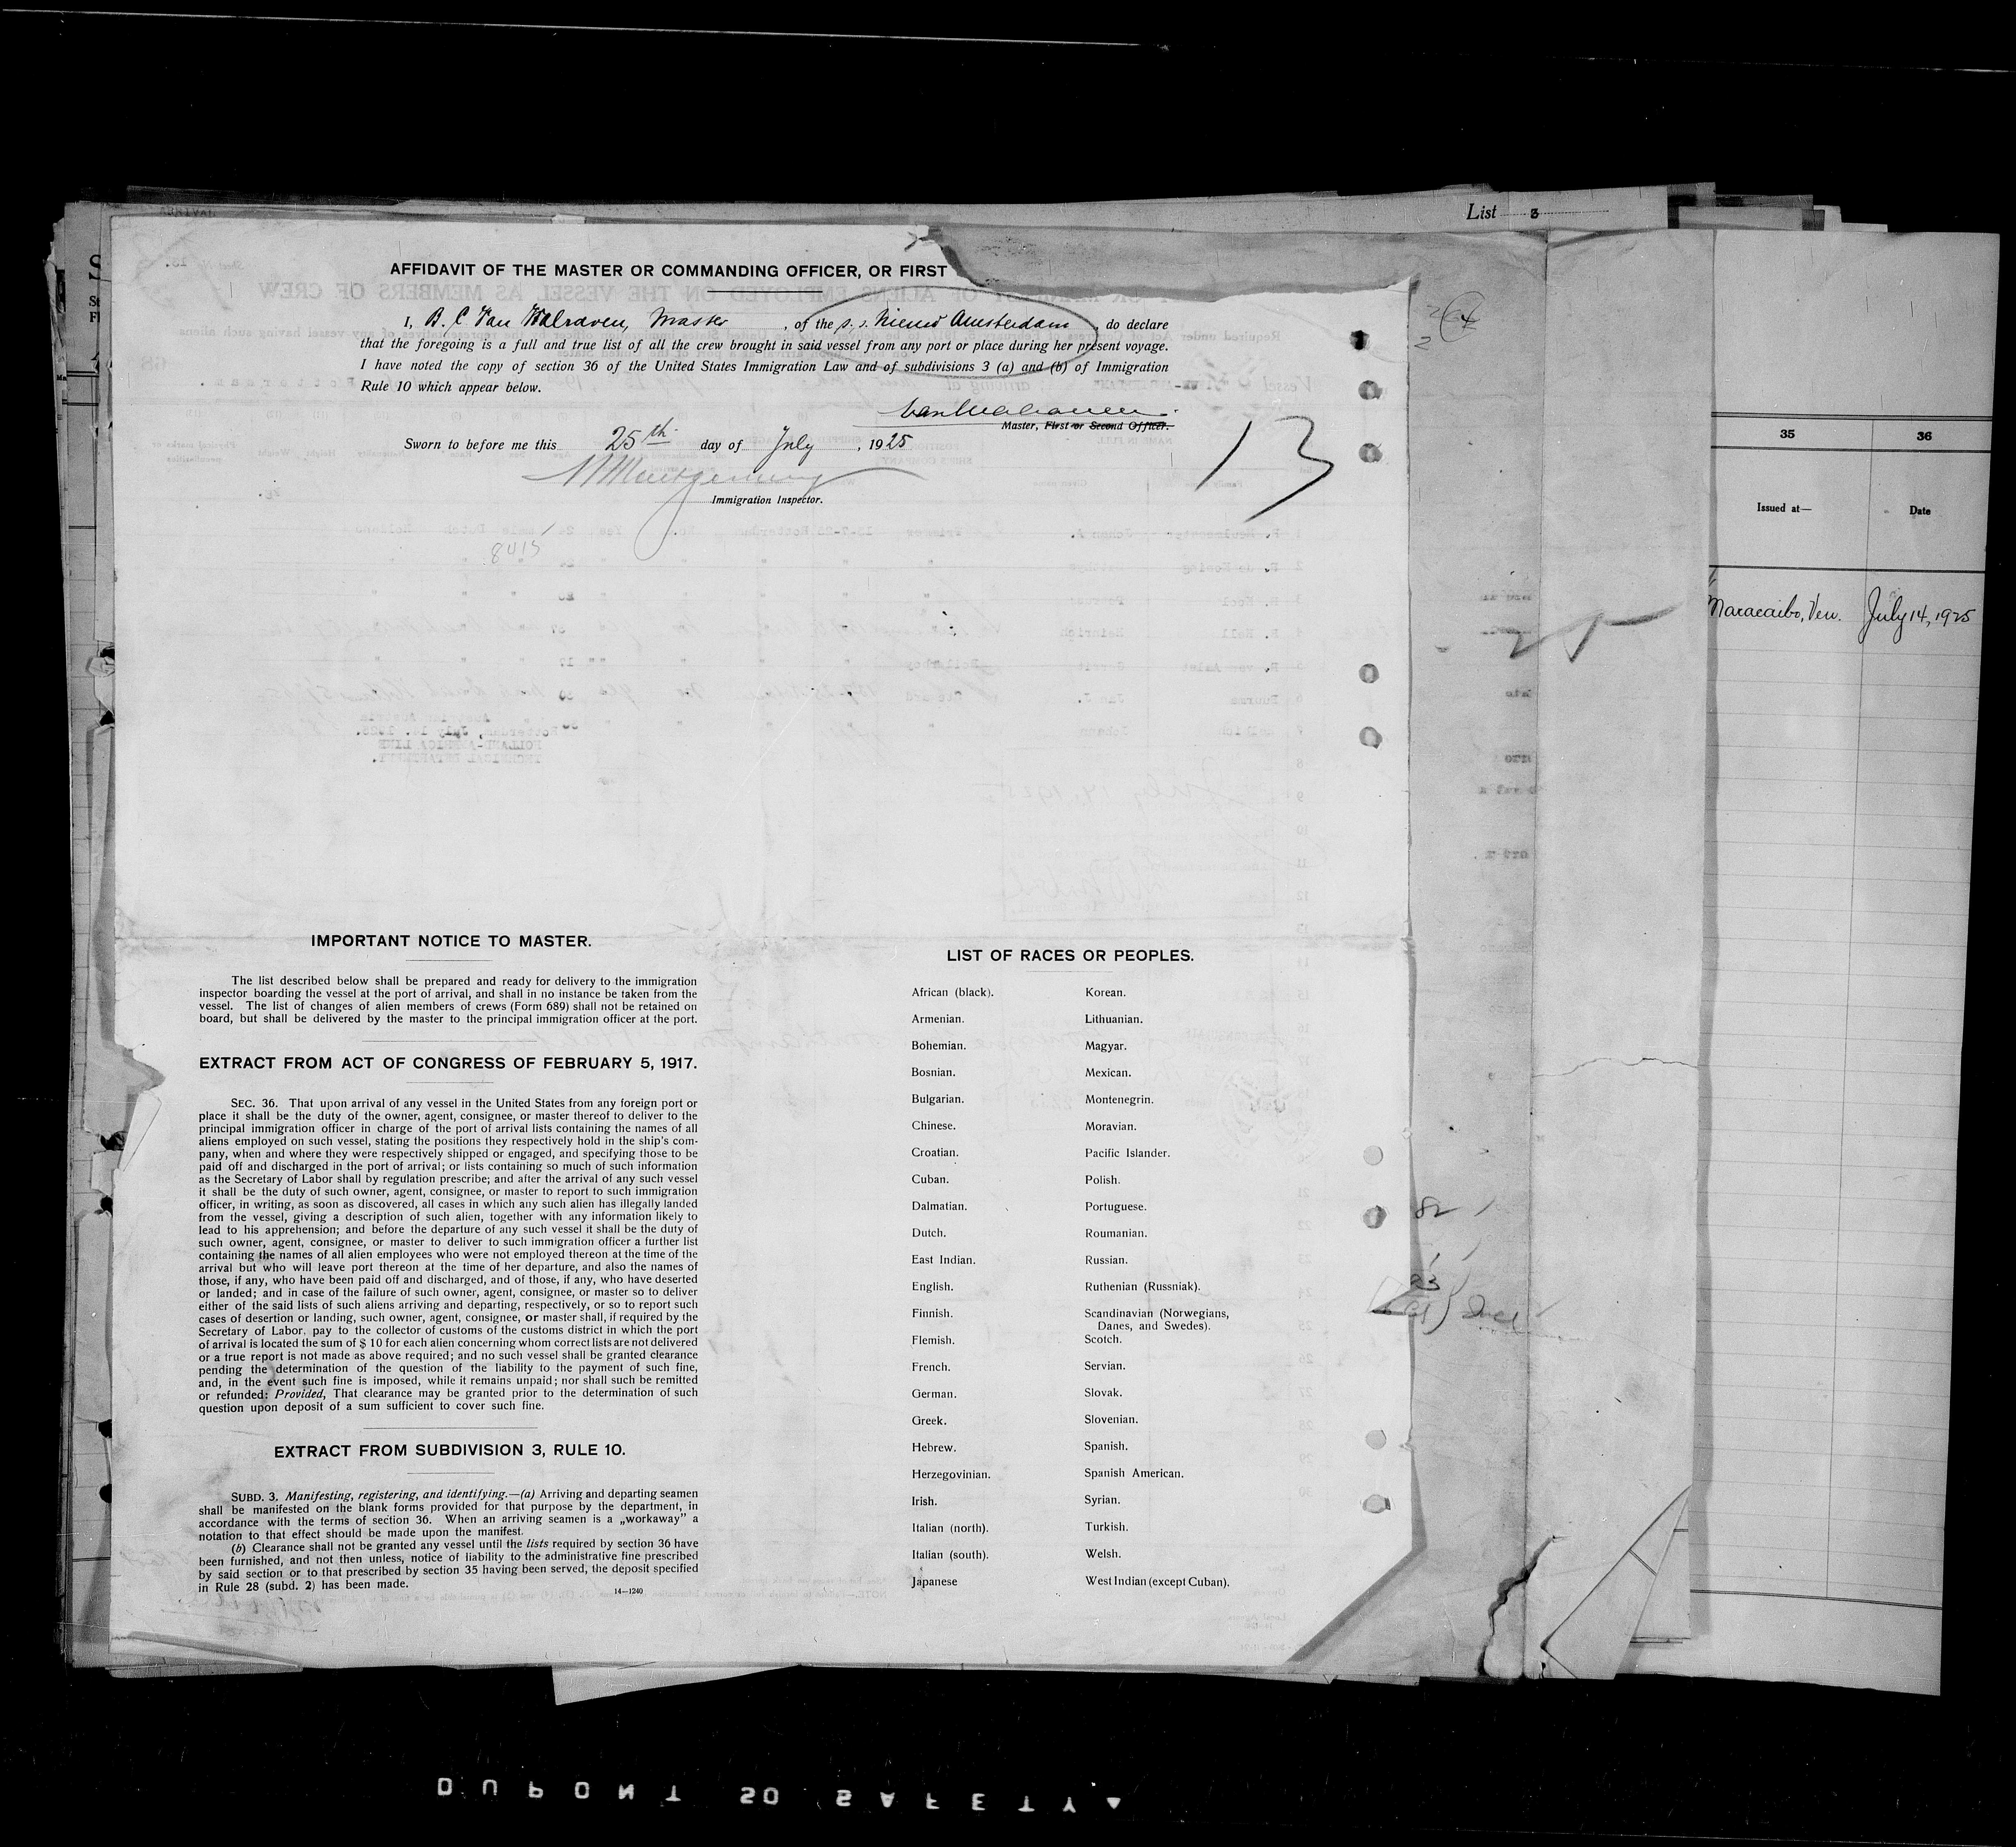 List 3
AFFIDAVIT OF THE MASTER OR COMMANDING OFFICER, OR FIRST
I, B. C. Van Walraven, Master, of the s. s. Nieuw Amsterdam, do declare
that the foregoing is a full and true list of all the crew brought in said vessel from any port or place during her present voyage.
I have noted the copy of section 36 of the United States Immigration Law and of subdivisions 3 (a) and (b) of Immigration
Rule 10 which appear below.
Master, First or Second Officer.
Sworn to before me this 25th day of July, 1925
Immigration Inspector.
13
8415
IMPORTANT NOTICE TO MASTER.
The list described below shall be prepared and ready for delivery to the immigration
inspector boarding the vessel at the port of arrival, and shall in no instance be taken from the
vessel. The list of changes of alien members of crews (Form 689) shall not be retained on
board, but shall be delivered by the master to the principal immigration officer at the port.
EXTRACT FROM ACT OF CONGRESS OF FEBRUARY 5, 1917.
SEC. 36. That upon arrival of any vessel in the United States from any foreign port or
place it shall be the duty of the owner, agent, consignee, or master thereof to deliver to the
principal immigration officer in charge of the port of arrival lists containing the names of all
aliens employed on such vessel, stating the positions they respectively hold in the ship's com-
pany, when and where they were respectively shipped or engaged, and specifying those to be
paid off and discharged in the port of arrival; or lists containing so much of such information
as the Secretary of Labor shall by regulation prescribe; and after the arrival of any such vessel
it shall be the duty of such owner, agent, consignee, or master to report to such immigration
officer, in writing, as soon as discovered, all cases in which any such alien has illegally landed
from the vessel, giving a description of such alien, together with any information likely to
lead to his apprehension; and before the departure of any such vessel it shall be the duty of
such owner, agent, consignee, or master to deliver to such immigration officer a further list
containing the names of all alien employees who were not employed thereon at the time of the
arrival but who will leave port thereon at the time of her departure, and also the names of
those, if any, who have been paid off and discharged, and of those, if any, who have deserted
or landed; and in case of the failure of such owner, agent, consignee, or master so to deliver
either of the said lists of such aliens arriving and departing, respectively, or so to report such
cases of desertion or landing, such owner, agent, consignee, or master shall, if required by the
Secretary of Labor, pay to the collector of customs of the customs district in which the port
of arrival is located the sum of $ 10 for each alien concerning whom correct lists are not delivered
or a true report is not made as above required; and no such vessel shall be granted clearance
pending the determination of the question of the liability to the payment of such fine,
and, in the event such fine is imposed, while it remains unpaid; nor shall such be remitted
or refunded: Provided, That clearance may be granted prior to the determination of such
question upon deposit of a sum sufficient to cover such fine.
EXTRACT FROM SUBDIVISION 3, RULE 10.
SUBD. 3. Manifesting, registering, and identifying.—(a) Arriving and departing seamen
shall be manifested on the blank forms provided for that purpose by the department, in
accordance with the terms of section 36. When an arriving seamen is a „workaway" a
notation to that effect should be made upon the manifest.
(b) Clearance shall not be granted any vessel until the lists required by section 36 have
been furnished, and not then unless, notice of liability to the administrative fine prescribed
by said section or to that prescribed by section 35 having been served, the deposit specified
in Rule 28 (subd. 2) has been made.
14—1240
LIST OF RACES OR PEOPLES.
African (black). Korean.
Armenian. Lithuanian.
Bohemian. Magyar.
Bosnian. Mexican.
Bulgarian. Montenegrin.
Chinese. Moravian.
Croatian. Pacific Islander.
Cuban. Polish.
Dalmatian. Portuguese.
Dutch. Roumanian.
East Indian. Russian.
English. Ruthenian (Russniak).
Finnish. Scandinavian (Norwegians,
Danes, and Swedes).
Flemish. Scotch.
French. Servian.
German. Slovak.
Greek. Slovenian.
Hebrew. Spanish.
Herzegovinian. Spanish American.
Irish. Syrian.
Italian (north). Turkish.
Italian (south). Welsh.
Japanese West Indian (except Cuban).
35 36
Issued at— Date
Maracaibo, Ven. July 14, 1925
82
DUPONT SO SAFETY